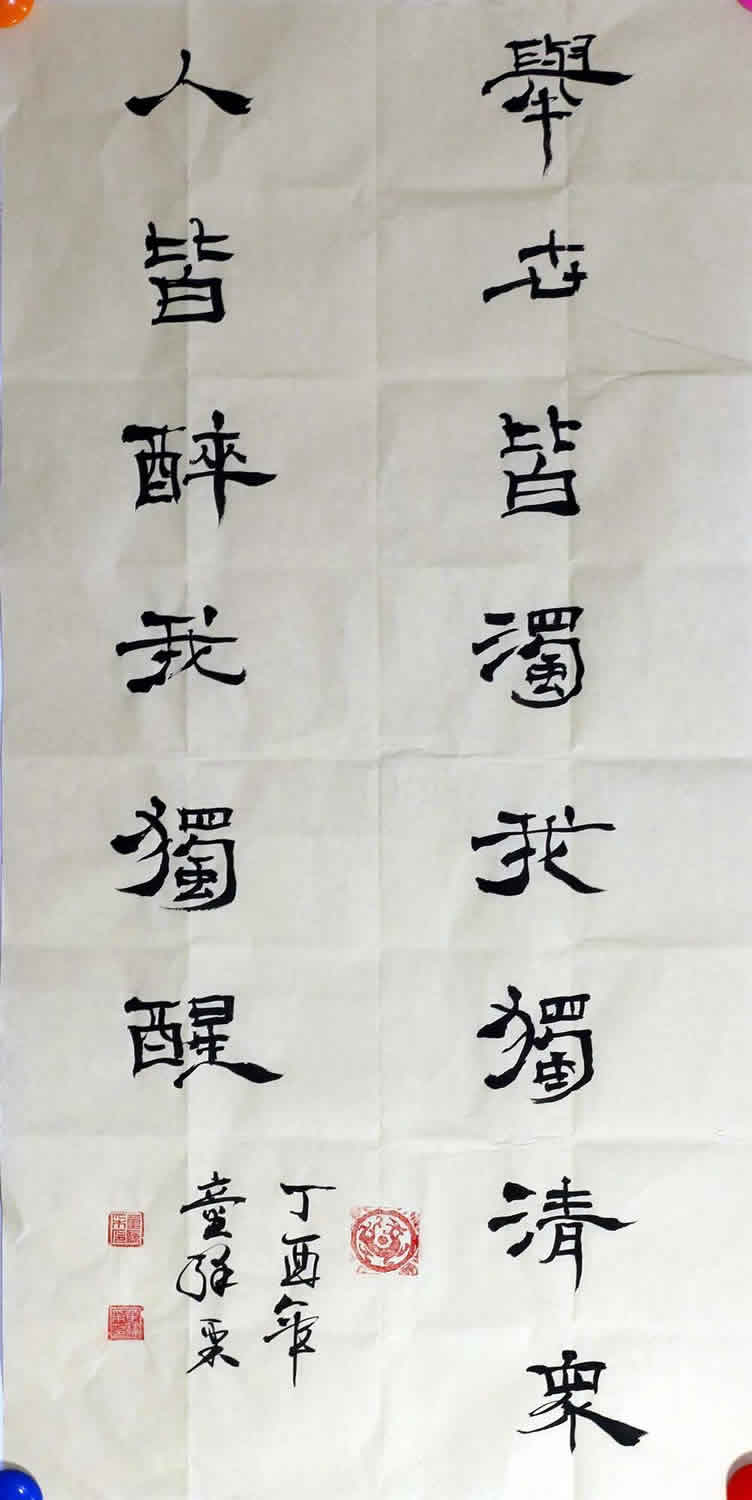 舉世皆濁我獨清衆
人皆醉我獨醒
丁酉年